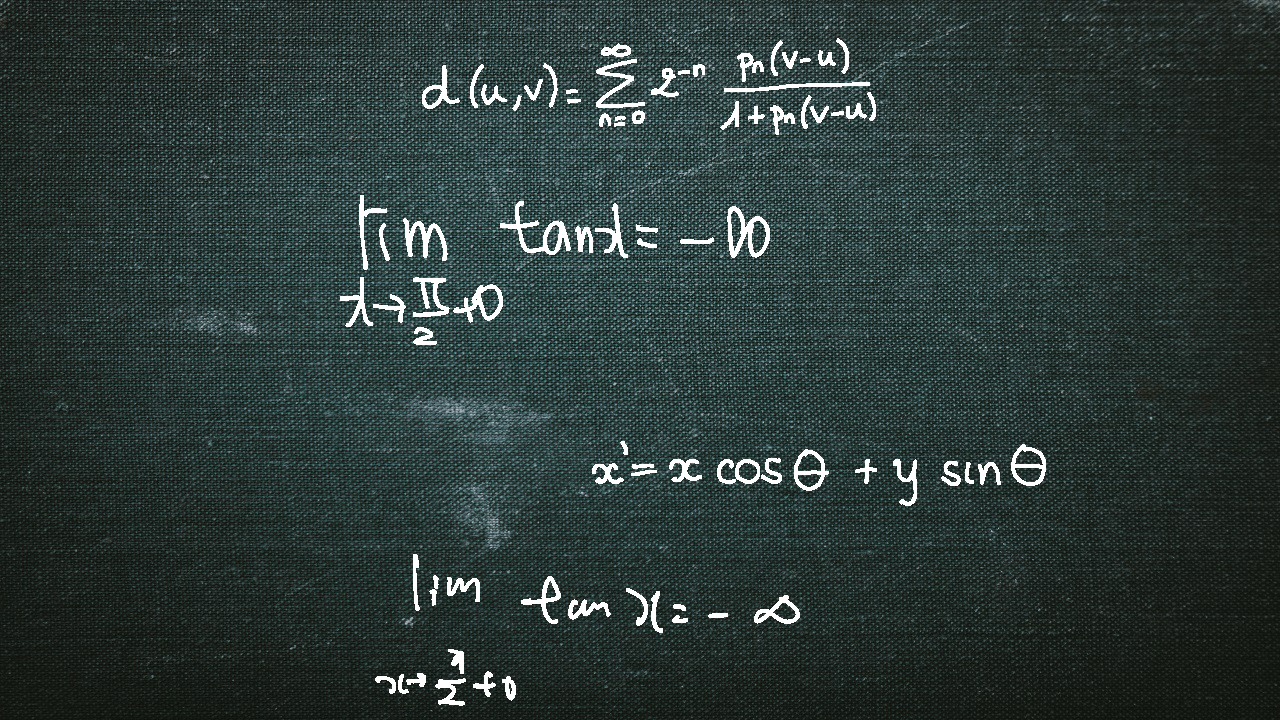 d(u,v)=\sum_{n=0}^{\infty} 2^{-n} \frac{p_n(v-u)}{1+p_n(v-u)}
\lim_{x \to \frac{\pi}{2}+0} \tan x = -\infty
x' = x \cos\theta + y \sin\theta
\lim_{x \to \frac{\pi}{2}+0} \tan x = -\infty